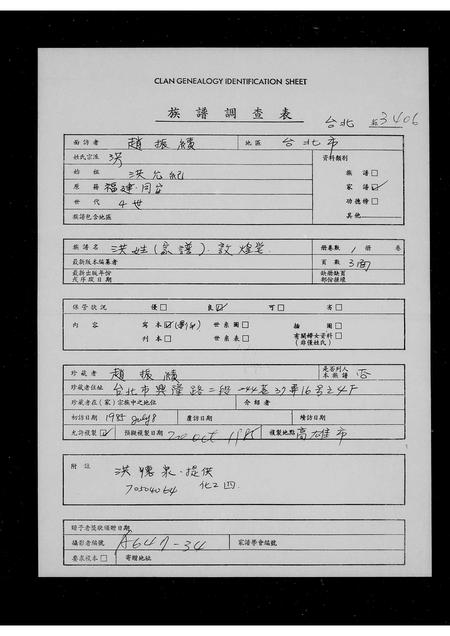 CLAN GENEALOGY IDENTIFICATION SHEET
族譜調查表
台北 3406
面訪者 趙振績 地區 台北市
姓氏宗派 洪 資料類別
始祖 洪允紀 族譜□
原籍 福建·同安 家譜☑
世代 4世 功德榜□
族譜包含地區 其他
族譜名 洪姓(家譜)·敦煌堂 冊卷數 1冊 卷
最新版本編纂者 頁數 3面
最新出版年份或序跋日期 缺冊缺頁部份操壞
保管狀況 優□ 良☑ 可□ 劣□
內容 寫本☑ 世系圖□ 插圖□
刊本□ 世系表□ 有關婦女資料(非僅姓氏)□
珍藏者 趙振績 是否列入本族譜 否
珍藏者住址 台北市興隆路二段244巷37弄16號之4F
珍藏者在(家)宗族中之地位 介紹者
初訪日期 1985 July 8 覆訪日期 續訪日期
允許複製☑ 預擬複製日期 20 Oct 1985 複製地點 高雄市
附註 洪 泉·提供
70504064
贈予者獎狀頒贈日期
攝影者編號 A647-34 家譜學會編號
要求複本□ 寄贈地址